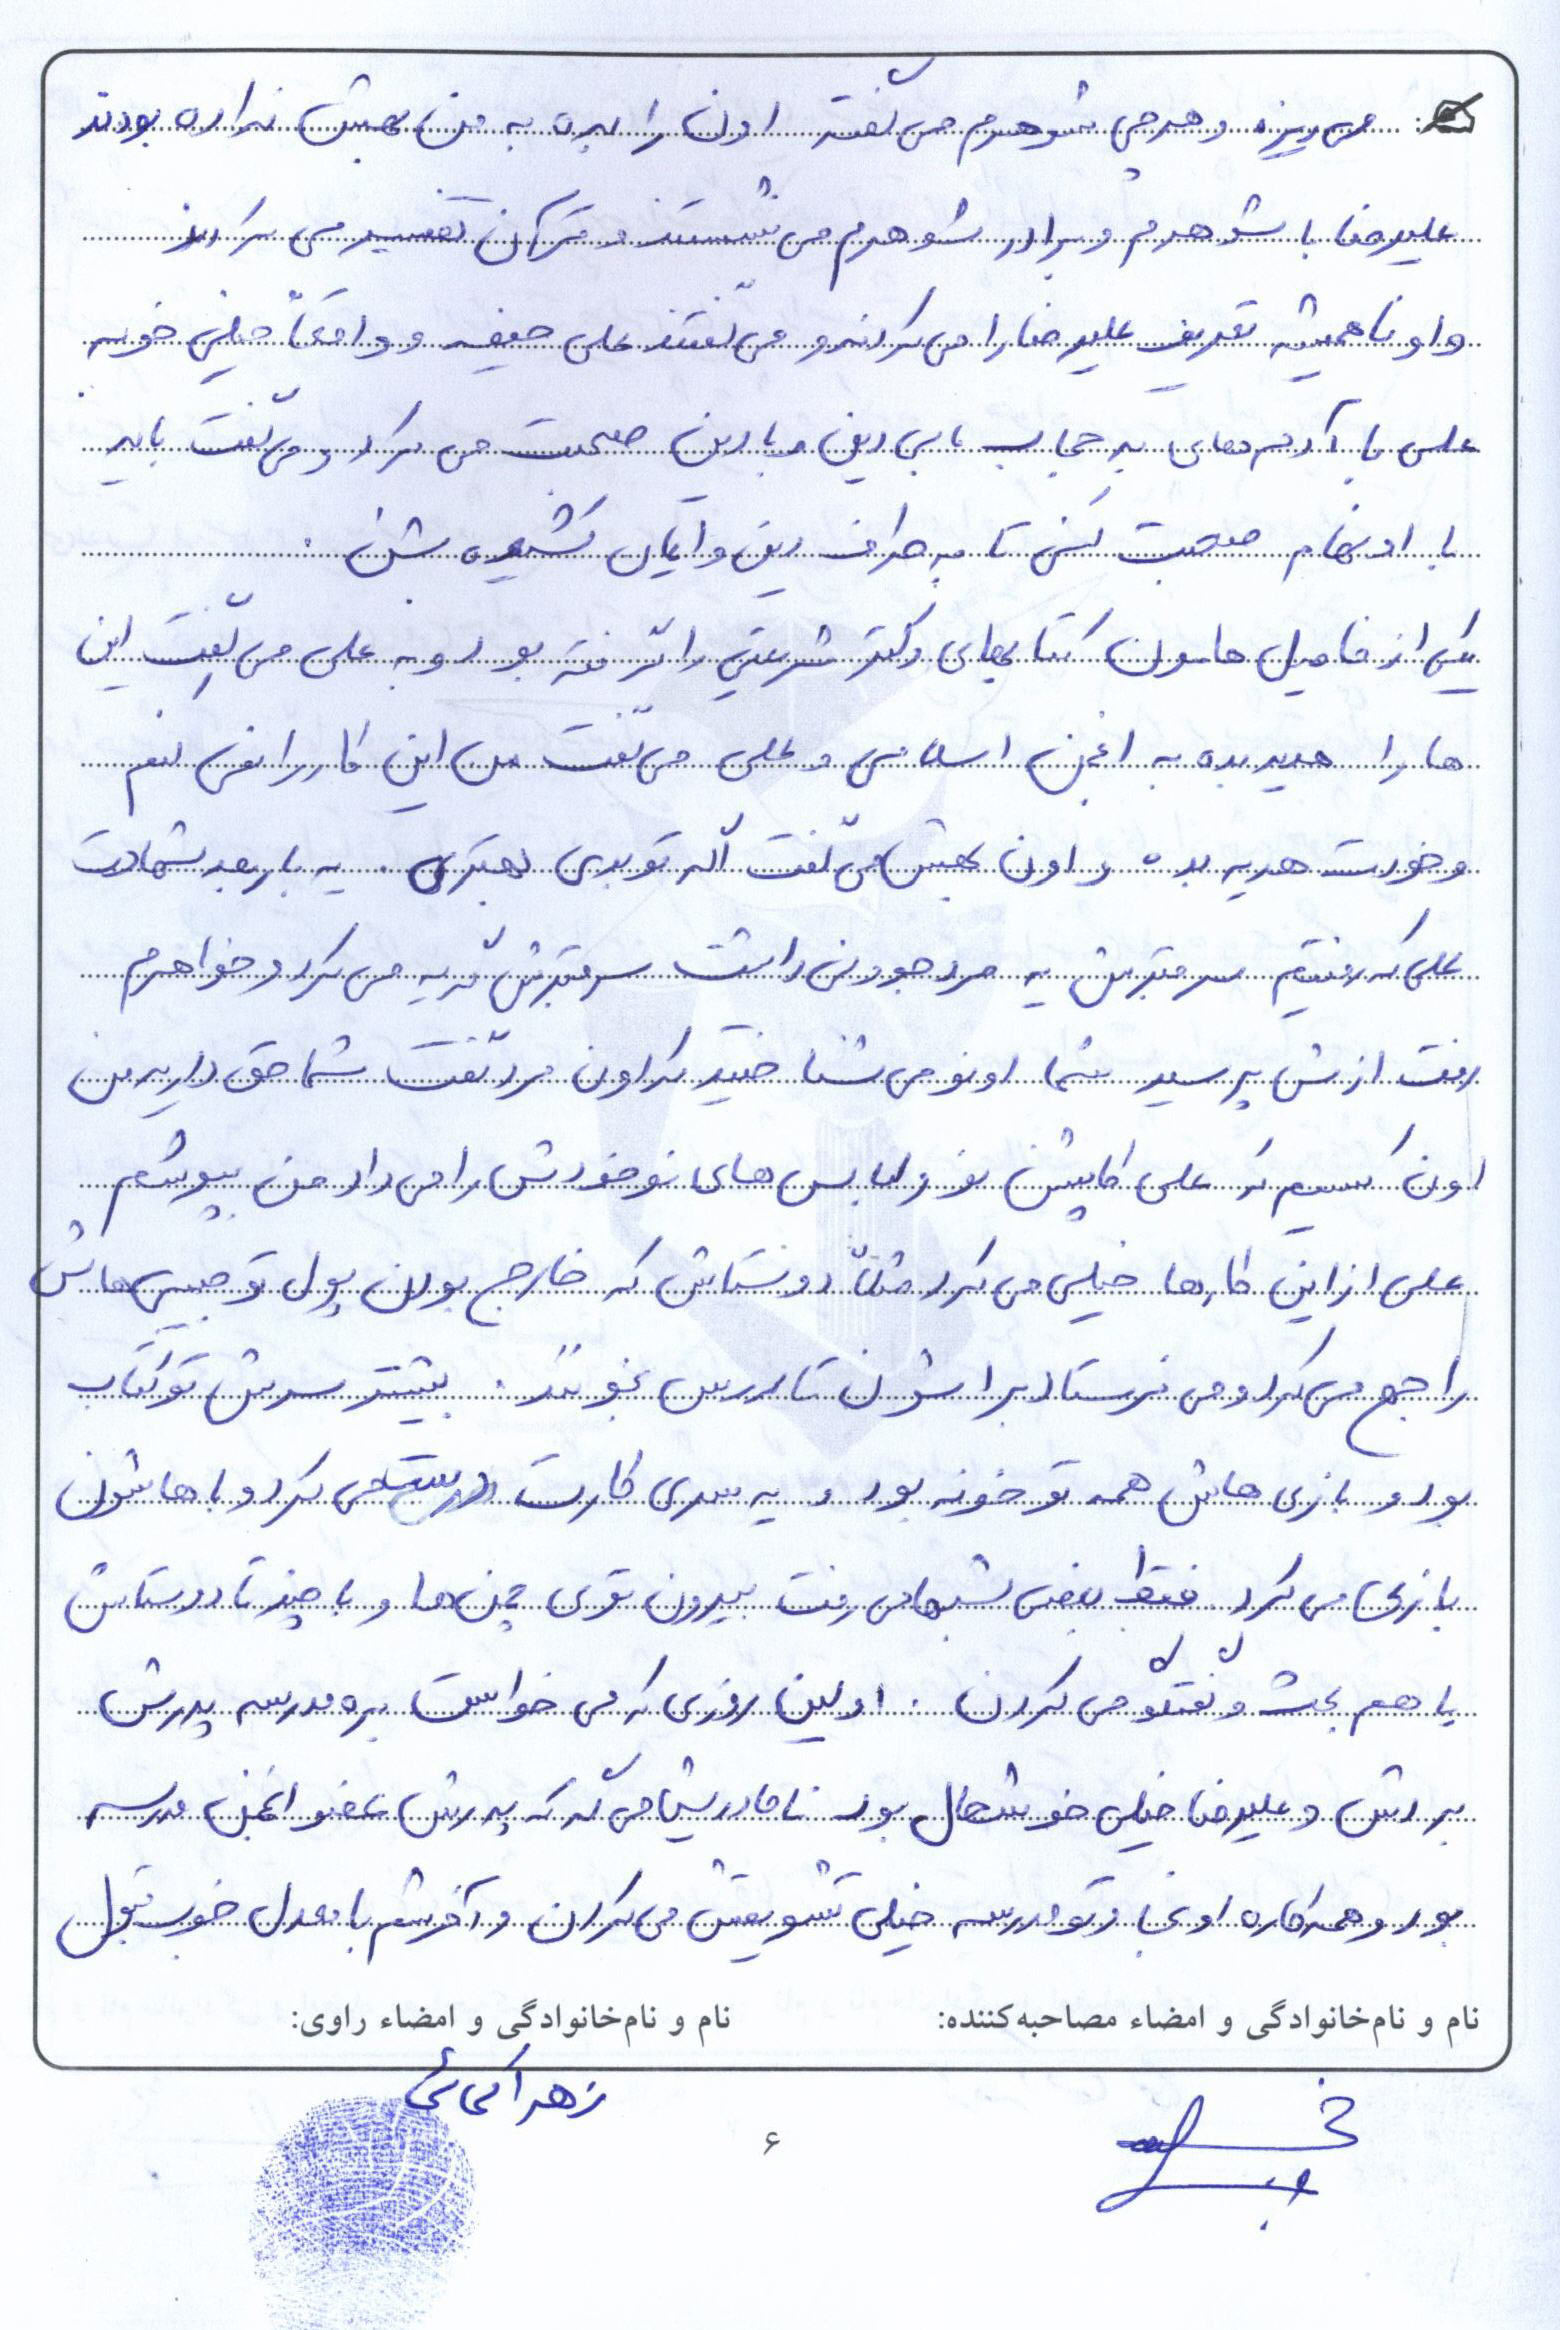 می‌ریزه و هر چی شوهرم می گفته اون را بده به من بهش نداده بودند
علیرضا با شوهرم و برادر شوهرم می نشستند و قرآن تفسیر می کردند
و اونا همیشه تعریف علیرضا را می کردند و می گفتند علی حیفه و واقعاً خیلی خوبه
علی با آدم‌های بد حجاب با بی دین و با دین صحبت می کرد و می گفت باید
با اونهام صحبت کنی تا به طرف دین و ایمان کشیده بشن .
یکی از فامیل هامون کتابهای دکتر شریعتی را گرفته بود و به علی می گفت این
ها را هدیه بده به انجمن اسلامی و علی می گفت من این کار را نمی کنم
و خودت هدیه بده و اون بهش می گفت اگه تو بدی بهتری . یه بار بعد شهادت
علی که رفتیم سر قبرش یه مرد جوون داشت سر قبرش گریه می کرد و خواهرم
رفت ازش پرسید شما اونو می شناختید که اون مرد گفت شما حق دارید من
اون کسیم که علی کاپشن نو و لباس های نو خودش را می داد من بپوشم
علی از این کارها خیلی می کرد مثلاً دوستاش که خارج بودن پول تو جیبی هاش
را جمع می کرد و می فرستاد براشون تا درس بخونند . بیشتر سرش تو کتاب
بود و بازی هاش همه تو خونه بود و یه سری کارت درست می کرد و با هاشون
بازی می کرد فقط بعضی شبها می رفت بیرون توی چمن ها و با چند تا دوستاش
با هم بحث و گفتگو می کردن . اولین روزی که می خواست بره مدرسه پدرش
بردش و علیرضا خیلی خوشحال بود نامادریش می گه که پدرش عضو انجمن مدرسه
بود و همه کاره اونجا و تو مدرسه خیلی تشویقش می کردن و آخرشم با معدل خوب قبول
نام و نام‌خانوادگی و امضاء مصاحبه‌کننده: نام و نام‌خانوادگی و امضاء راوی:
زهرا
۶